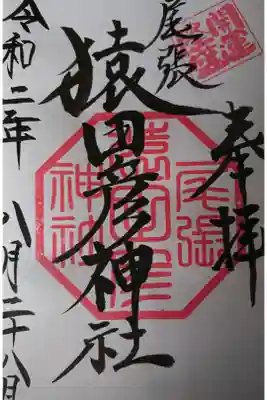 奉拝
尾張
猿田彦神社
令和二年 八月二十八日
尾張
猿田彦
神社